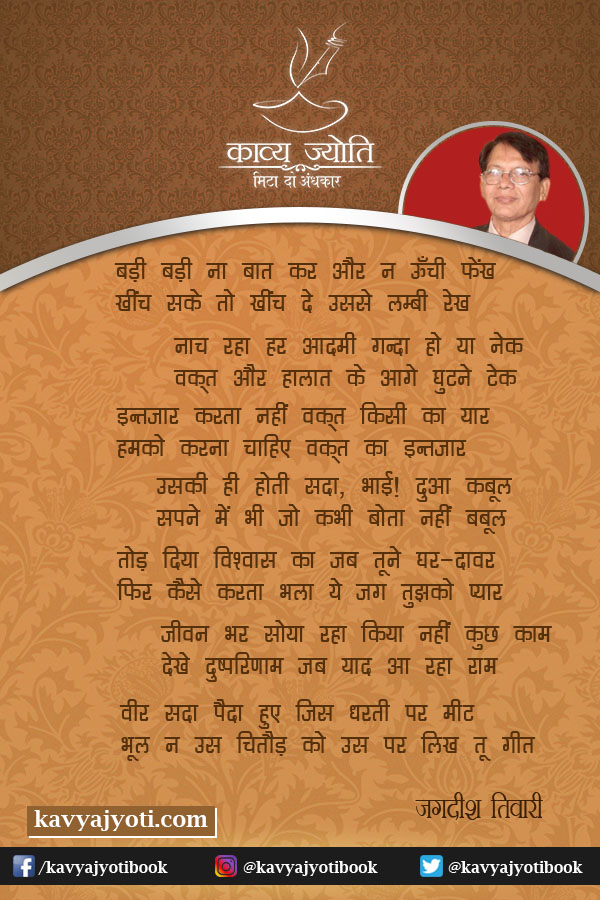 काव्य ज्योति
मिटा दो अंधकार
बड़ी बड़ी ना बात कर और न ऊँची फेंख
खींच सके तो खींच दे उससे लम्बी रेख
नाच रहा हर आदमी गन्दा हो या नेक
वक़्त और हालात के आगे घुटने टेक
इन्तजार करता नहीं वक़्त किसी का यार
हमको करना चाहिए वक़्त का इन्तजार
उसकी ही होती सदा, भाई! दुआ कबूल
सपने में भी जो कभी बोता नहीं बबूल
तोड़ दिया विश्वास का जब तूने घर-दावर
फिर कैसे करता भला ये जग तुझको प्यार
जीवन भर सोया रहा किया नहीं कुछ काम
देखे दुष्परिणाम जब याद आ रहा राम
वीर सदा पैदा हुए जिस धरती पर मीट
भूल न उस चितौड़ को उस पर लिख तू गीत
जगदीश तिवारी
kavyajyoti.com
/kavyajyotibook @kavyajyotibook @kavyajyotibook